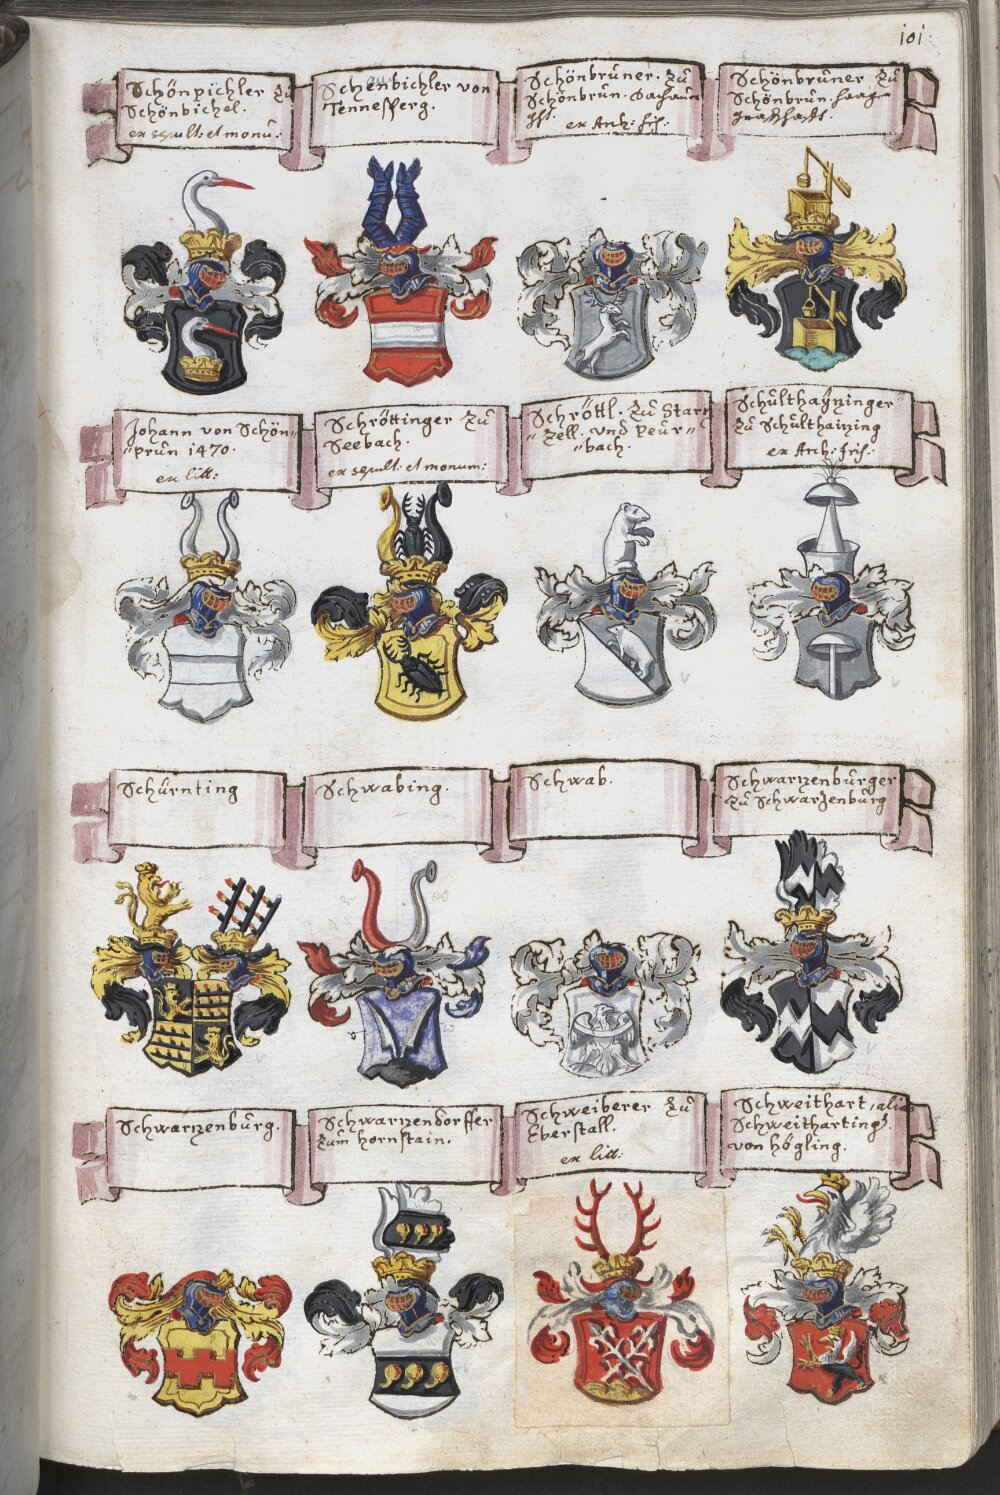 101
Schönpichler Zu
Schönbichel.
ex sepult: et monu:
Schenbichler von
Tennesberg.
Schönbruner. Zu
Schönbrun. Dachauer
Gst. ex Arch: fris:
Schönbruner Zu
Schönbrun. haager
graffschafft.
Johann von Schön=
=prun 1470.
ex litt:
Schröttinger Zu
Seebach.
ex sepult: et monum:
Schröttl. Zu Start
Zell. und Peur=
=bach.
Schulthayninger
Zu Schulthaining
ex Arch: fris:
Schurnting
Schwabing.
Schwab.
Schwarzenburger
zu Schwarzenburg
Schwarzenburg.
Schwarzendorffer
zum hornstain.
Schweiberer Zu
Eberstall.
ex litt:
Schweithart, alias
Schweithartinger
von högling.